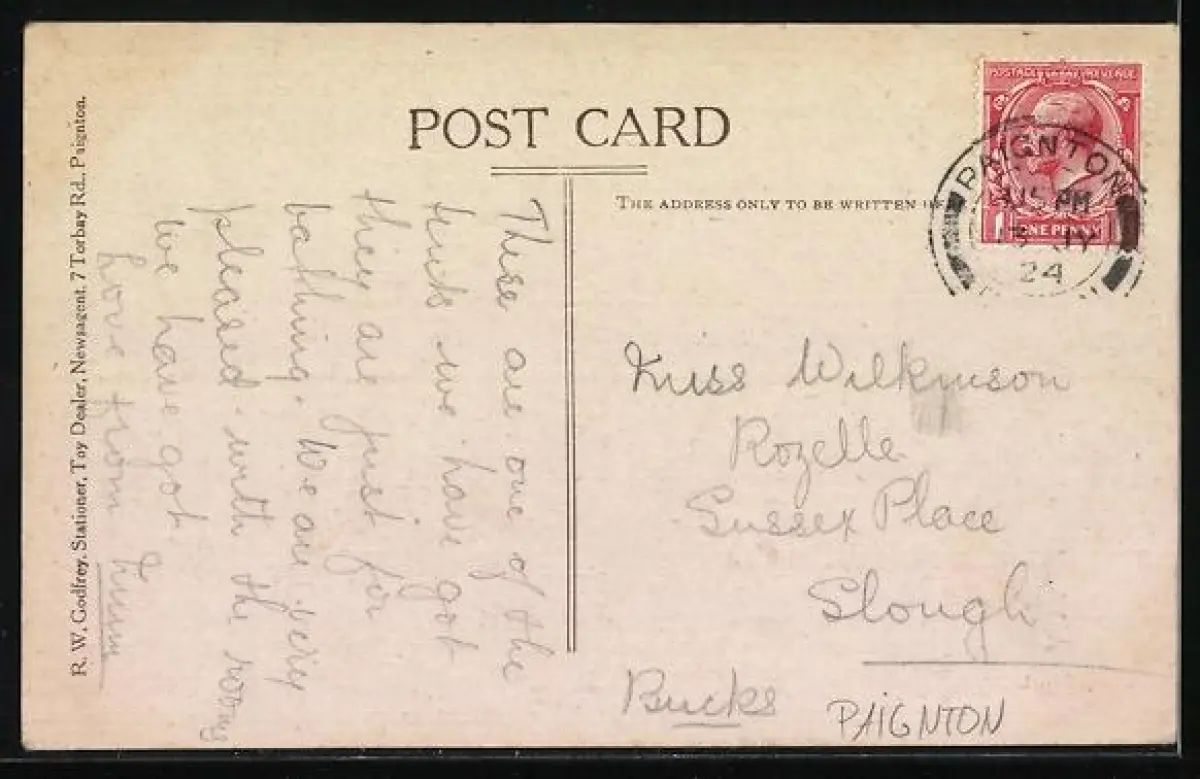 POST CARD
THE ADDRESS ONLY TO BE WRITTEN HERE
POSTAGE REVENUE
ONE PENNY
PAIGNTON
PM
24
R. W. Godfrey, Stationer, Toy Dealer, Newsagent, 7 Torbay Rd., Paignton.
These are one of the
tents we have got
they are just for
bathing. We are very
pleased with the rooms
we have got
Love from
Miss Wilkinson
Rozelle
Sussex Place
Slough
Bucks
PAIGNTON